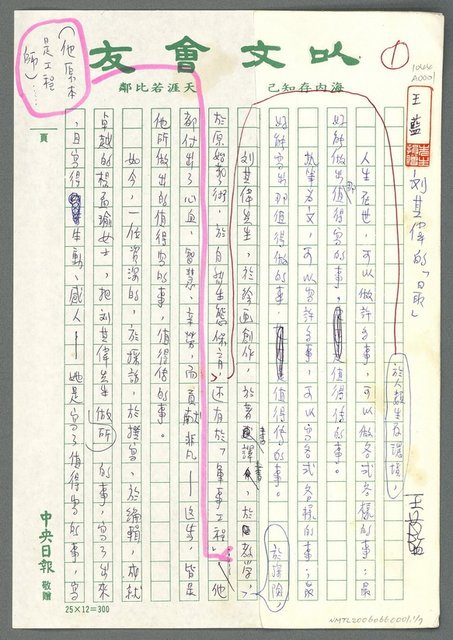 以文會友
海内存知己
天涯若比鄰
①
1066
A0001
王藍
劉其偉的「最」
王藍
人生在世，可以做許多事，可以做各式各樣的事；最
於人類生存環境，
好能做出那值得寫的事，值得傳的事。
執筆為文，可以寫許多事，可以寫各式各樣的事；最
好能寫出那值得做的事，值得傳的事。
劉其偉先生，於繪畫創作，於著書譯書，於教學，
於探險，
於原始藝術，於自然生態保育，還有於「軍事工程」
他
（他原本是工程師）……
都付出了心血、智慧、辛勞，而貢獻非凡——這些，皆是
他所做出的值得寫的事，值得傳的事。
如今，一位資深的，於採訪，於撰寫，於編輯，成就
卓越的楊孟瑜女士，把劉其偉先生做所的事，寫了出來
，且寫得生動、感人——她是寫了值得寫的事，寫
頁
中央日報 敬贈
25×12=300
NMTL20060660001 1/9